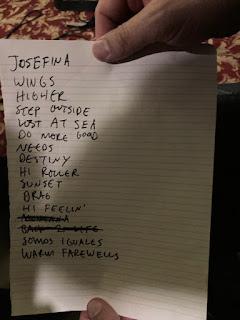 JOSEFINA
WINGS
HIGHER
STEP OUTSIDE
LOST AT SEA
DO MORE GOOD
NEEDS
DESTINY
HI ROLLER
SUNSET
DRAG
HI FEELIN'
BACK 2 LIFE
SOMOS IGUALES
WARM FAREWELLS